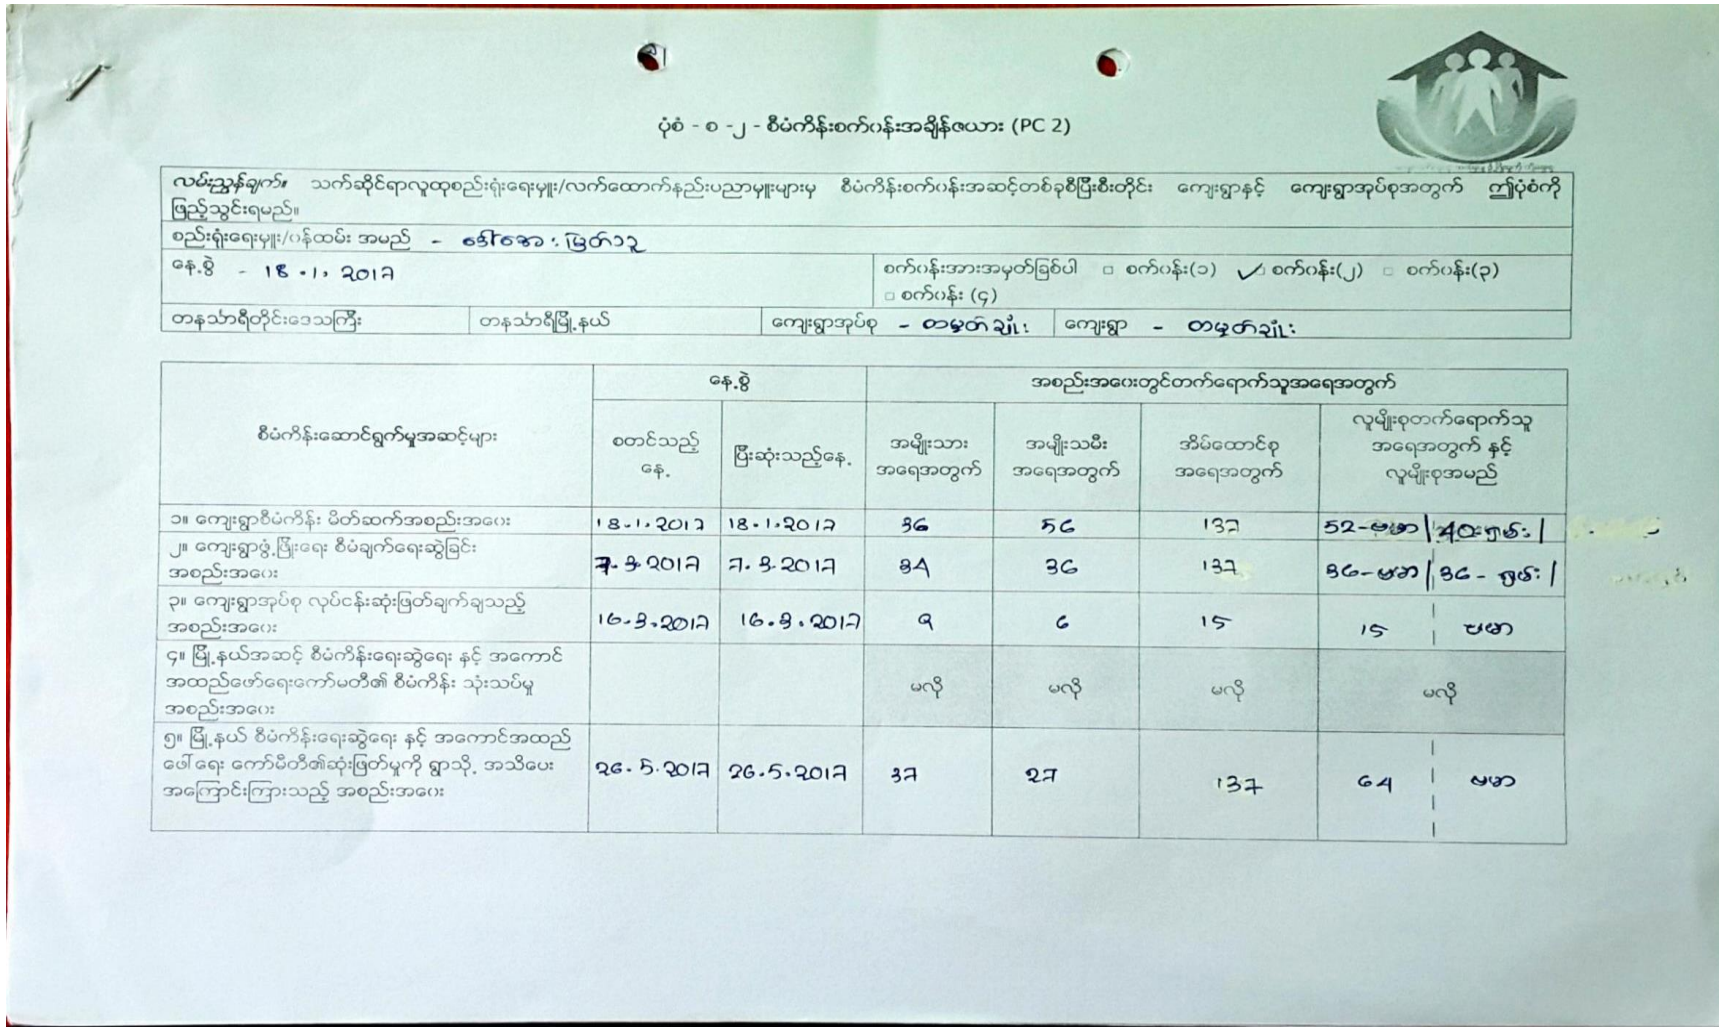 ပုံစံ - စ -၂ - စီမံကိန်းစက်ဝန်းအချိန်ဇယား (PC 2)
လမ်းညွှန်ချက်။ သက်ဆိုင်ရာလူထုစည်းရုံးရေးမှူး/လက်ထောက်နည်းပညာမှူးများမှ စီမံကိန်းစက်ဝန်းအဆင့်တစ်ခုစီပြီးစီးတိုင်း ကျေးရွာနှင့် ကျေးရွာအုပ်စုအတွက် ဤပုံစံကို
ဖြည့်သွင်းရမည်။
စည်းရုံးရေးမှူး/ဝန်ထမ်း အမည် - ဒေါ်အေးမြတ်သူ
နေ့စွဲ - 18.1.2017 စက်ဝန်းအားအမှတ်ခြစ်ပါ □ စက်ဝန်း(၁) ✓ စက်ဝန်း(၂) □ စက်ဝန်း(၃)
□ စက်ဝန်း (၄)
တနင်္သာရီတိုင်းဒေသကြီး တနင်္သာရီမြို့နယ် ကျေးရွာအုပ်စု - ကျေးရွာ -
နေ့စွဲ အစည်းအဝေးတွင်တက်ရောက်သူအရေအတွက်
စီမံကိန်းဆောင်ရွက်မှုအဆင့်များ
စတင်သည့်
နေ့
ပြီးဆုံးသည့်နေ့
အမျိုးသား
အရေအတွက်
အမျိုးသမီး
အရေအတွက်
အိမ်ထောင်စု
အရေအတွက်
လူမျိုးစုတက်ရောက်သူ
အရေအတွက် နှင့်
လူမျိုးစုအမည်
၁။ ကျေးရွာစီမံကိန်း မိတ်ဆက်အစည်းအဝေး 18.1.2017 18.1.2017 36 56 137 52-ဗမာ | 40-ရှမ်း |
၂။ ကျေးရွာဖွံ့ဖြိုးရေး စီမံချက်ရေးဆွဲခြင်း
အစည်းအဝေး 7.3.2017 7.3.2017 34 36 137 36-ဗမာ | 36-ရှမ်း |
၃။ ကျေးရွာအုပ်စု လုပ်ငန်းဆုံးဖြတ်ချက်ချသည့်
အစည်းအဝေး 16.3.2017 16.3.2017 9 6 15 15 | ဗမာ
၄။ မြို့နယ်အဆင့် စီမံကိန်းရေးဆွဲရေး နှင့် အကောင်
အထည်ဖော်ရေးကော်မတီ၏ စီမံကိန်း သုံးသပ်မှု
အစည်းအဝေး မလို မလို မလို မလို
၅။ မြို့နယ် စီမံကိန်းရေးဆွဲရေး နှင့် အကောင်အထည်
ဖေါ်ရေး ကော်မီတီ၏ဆုံးဖြတ်မှုကို ရွာသို့ အသိပေး
အကြောင်းကြားသည့် အစည်းအဝေး 26.5.2017 26.5.2017 37 27 137 64 | ဗမာ